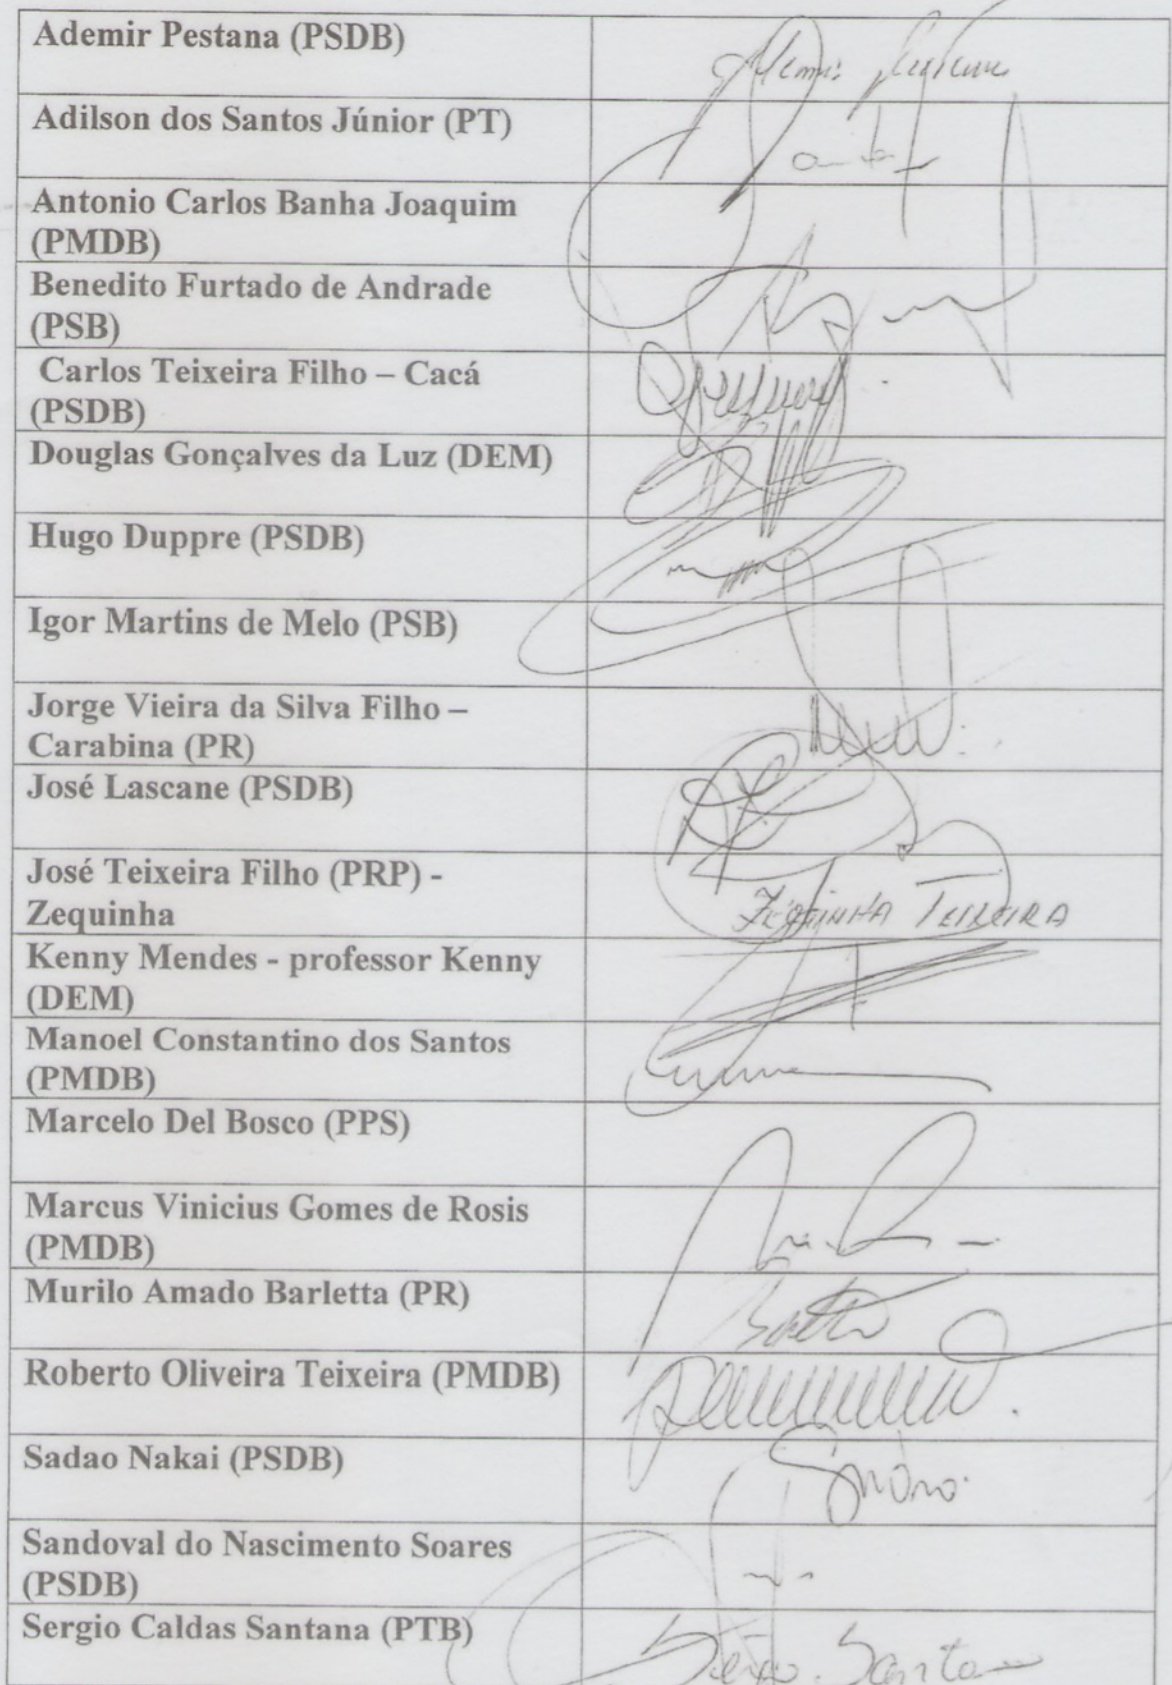 Ademir Pestana (PSDB)
Adilson dos Santos Júnior (PT)
Antonio Carlos Banha Joaquim
(PMDB)
Benedito Furtado de Andrade
(PSB)
Carlos Teixeira Filho – Cacá
(PSDB)
Douglas Gonçalves da Luz (DEM)
Hugo Duppre (PSDB)
Igor Martins de Melo (PSB)
Jorge Vieira da Silva Filho –
Carabina (PR)
José Lascane (PSDB)
José Teixeira Filho (PRP) -
Zequinha
ZEQUINHA TEIXEIRA
Kenny Mendes - professor Kenny
(DEM)
Manoel Constantino dos Santos
(PMDB)
Marcelo Del Bosco (PPS)
Marcus Vinicius Gomes de Rosis
(PMDB)
Murilo Amado Barletta (PR)
Roberto Oliveira Teixeira (PMDB)
Sadao Nakai (PSDB)
Sandoval do Nascimento Soares
(PSDB)
Sergio Caldas Santana (PTB)